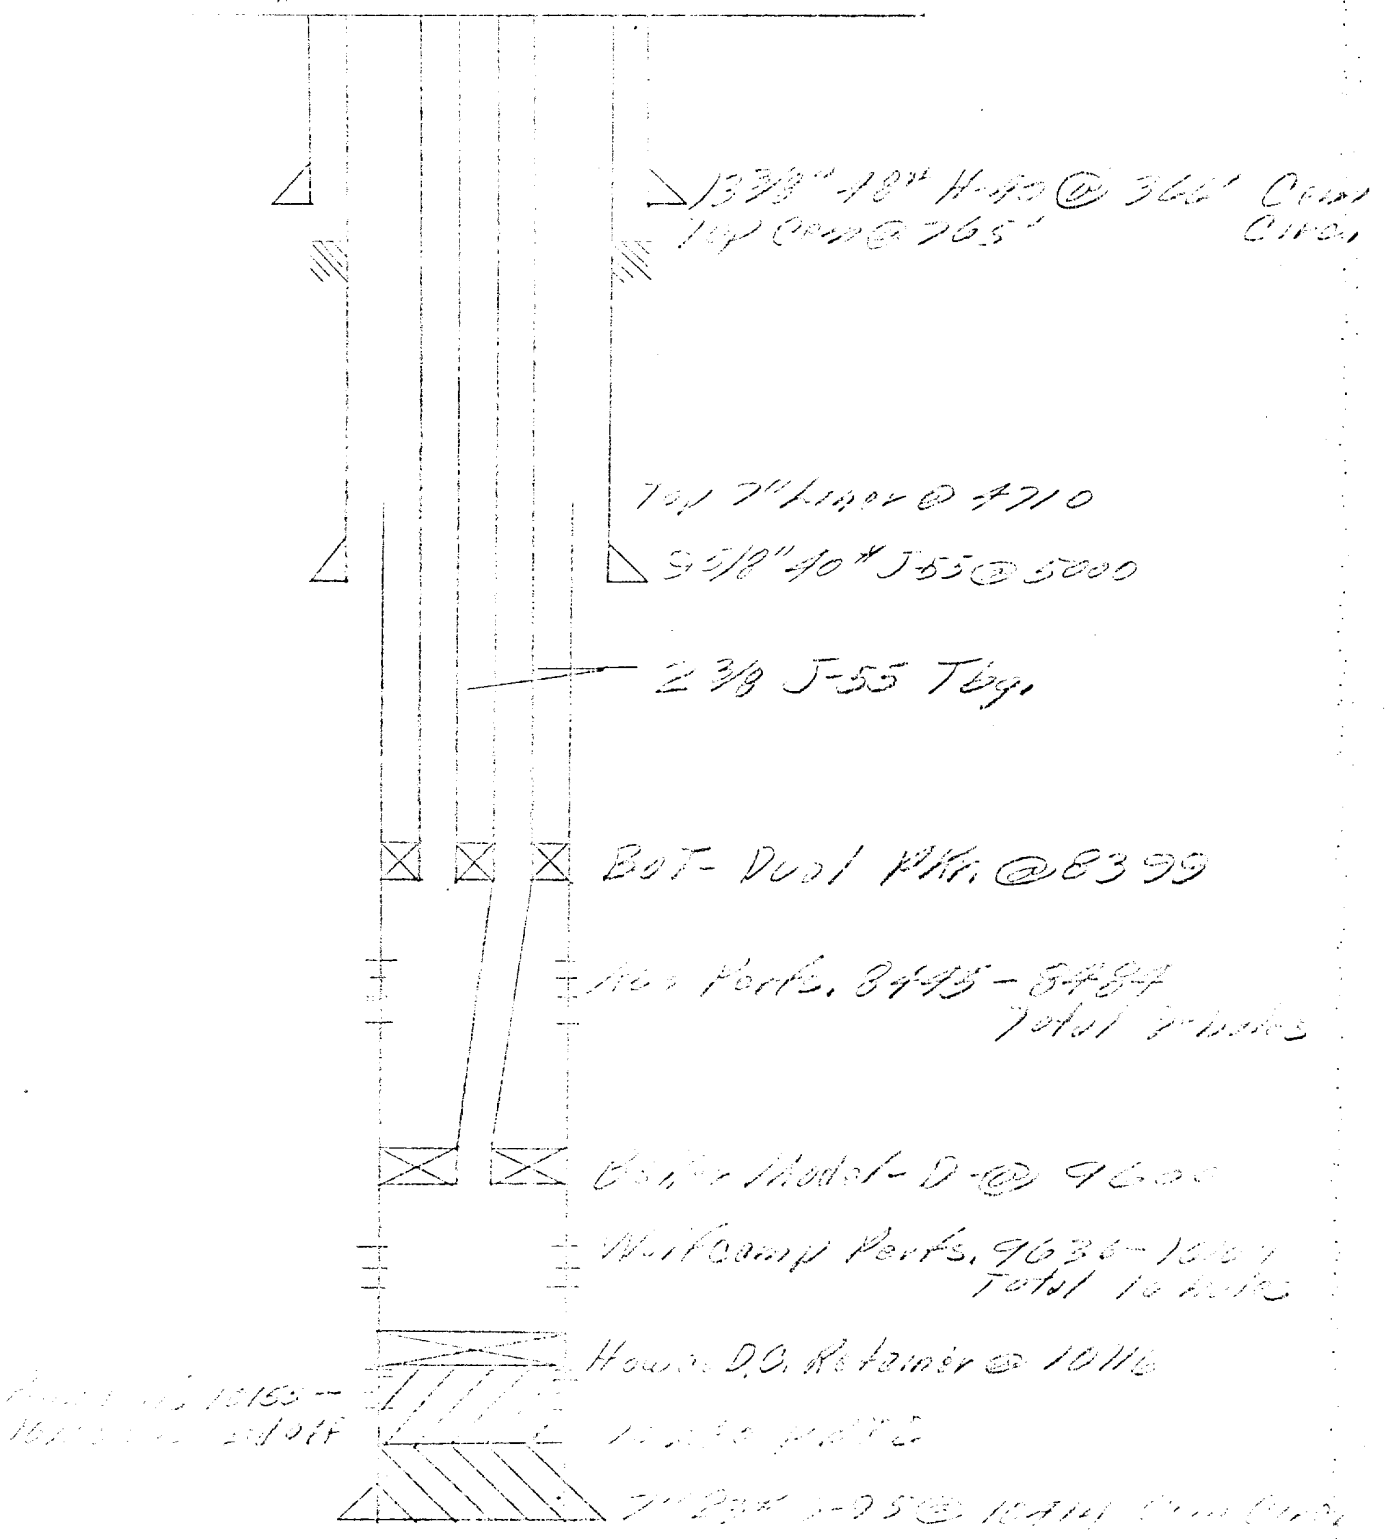 13 3/8" 48# H-40 @ 366' Cem
Top Cem @ 765' Circ.
Top 7" Liner @ 4710
9 5/8" 40# J-55 @ 5000
2 3/8 J-55 Tbg.
BOT- Dual Pkr. @ 8399
Perfs. 8445-8484
Total holes
Model-D-@ 9600
Wolfcamp Perfs. 9636-
Total 16 holes
Howco D.O. Retainer @ 10116
10155-
7" @ 10414 Cem Circ.